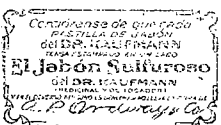 Cerciórense de que cada
PASTILLA DE JABÓN
del DR. KAUFMANN
TENGA ESTAMPADO EN UN LADO
El Jabón Sulfuroso
del DR. KAUFMANN
MEDICINAL Y DE TOCADOR
A. P. Ordway y Ca.